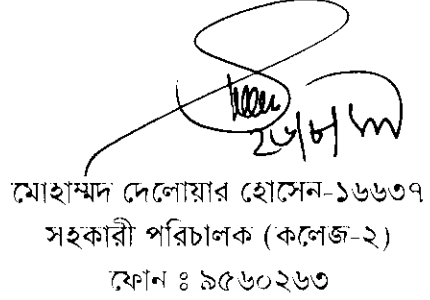 মোহাম্মদ দেলোয়ার হোসেন-১৬৬৩৭
সহকারী পরিচালক (কলেজ-২)
ফোন ঃ ৯৫৬০২৬৩